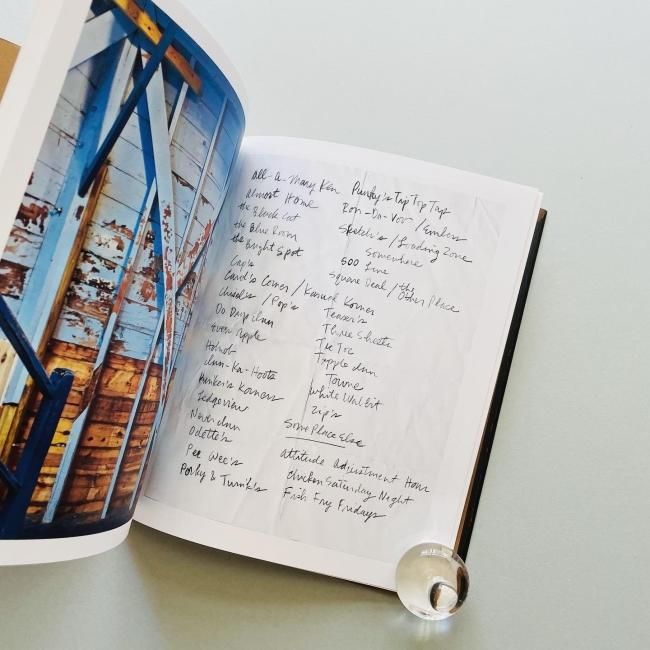 All-a-Mary Ken
Almost Home
the Black Cat
the Blue Room
the Bright Spot
Cap's
Card's Corner / Kanuck Korner
/ Pop's
Do Drop Inn
Even Apple
Hobnob
Inn-Ka-Hoots
Korners
Ledgeview
Never Inn
Odette's
Pee Wee's
Porky &
Punky's Tip Top Tap
Ron-De-Vov / Embers
/ Loading Zone
Somewhere
500
Line
Square Deal / the Other Place
Teaser's
Three Sheets
Tic Toc
Tipple Inn
Towne
White Wal Bit
Zip's
Some Place Else
Attitude Adjustment Hour
Chicken Saturday Night
Fish Fry Fridays